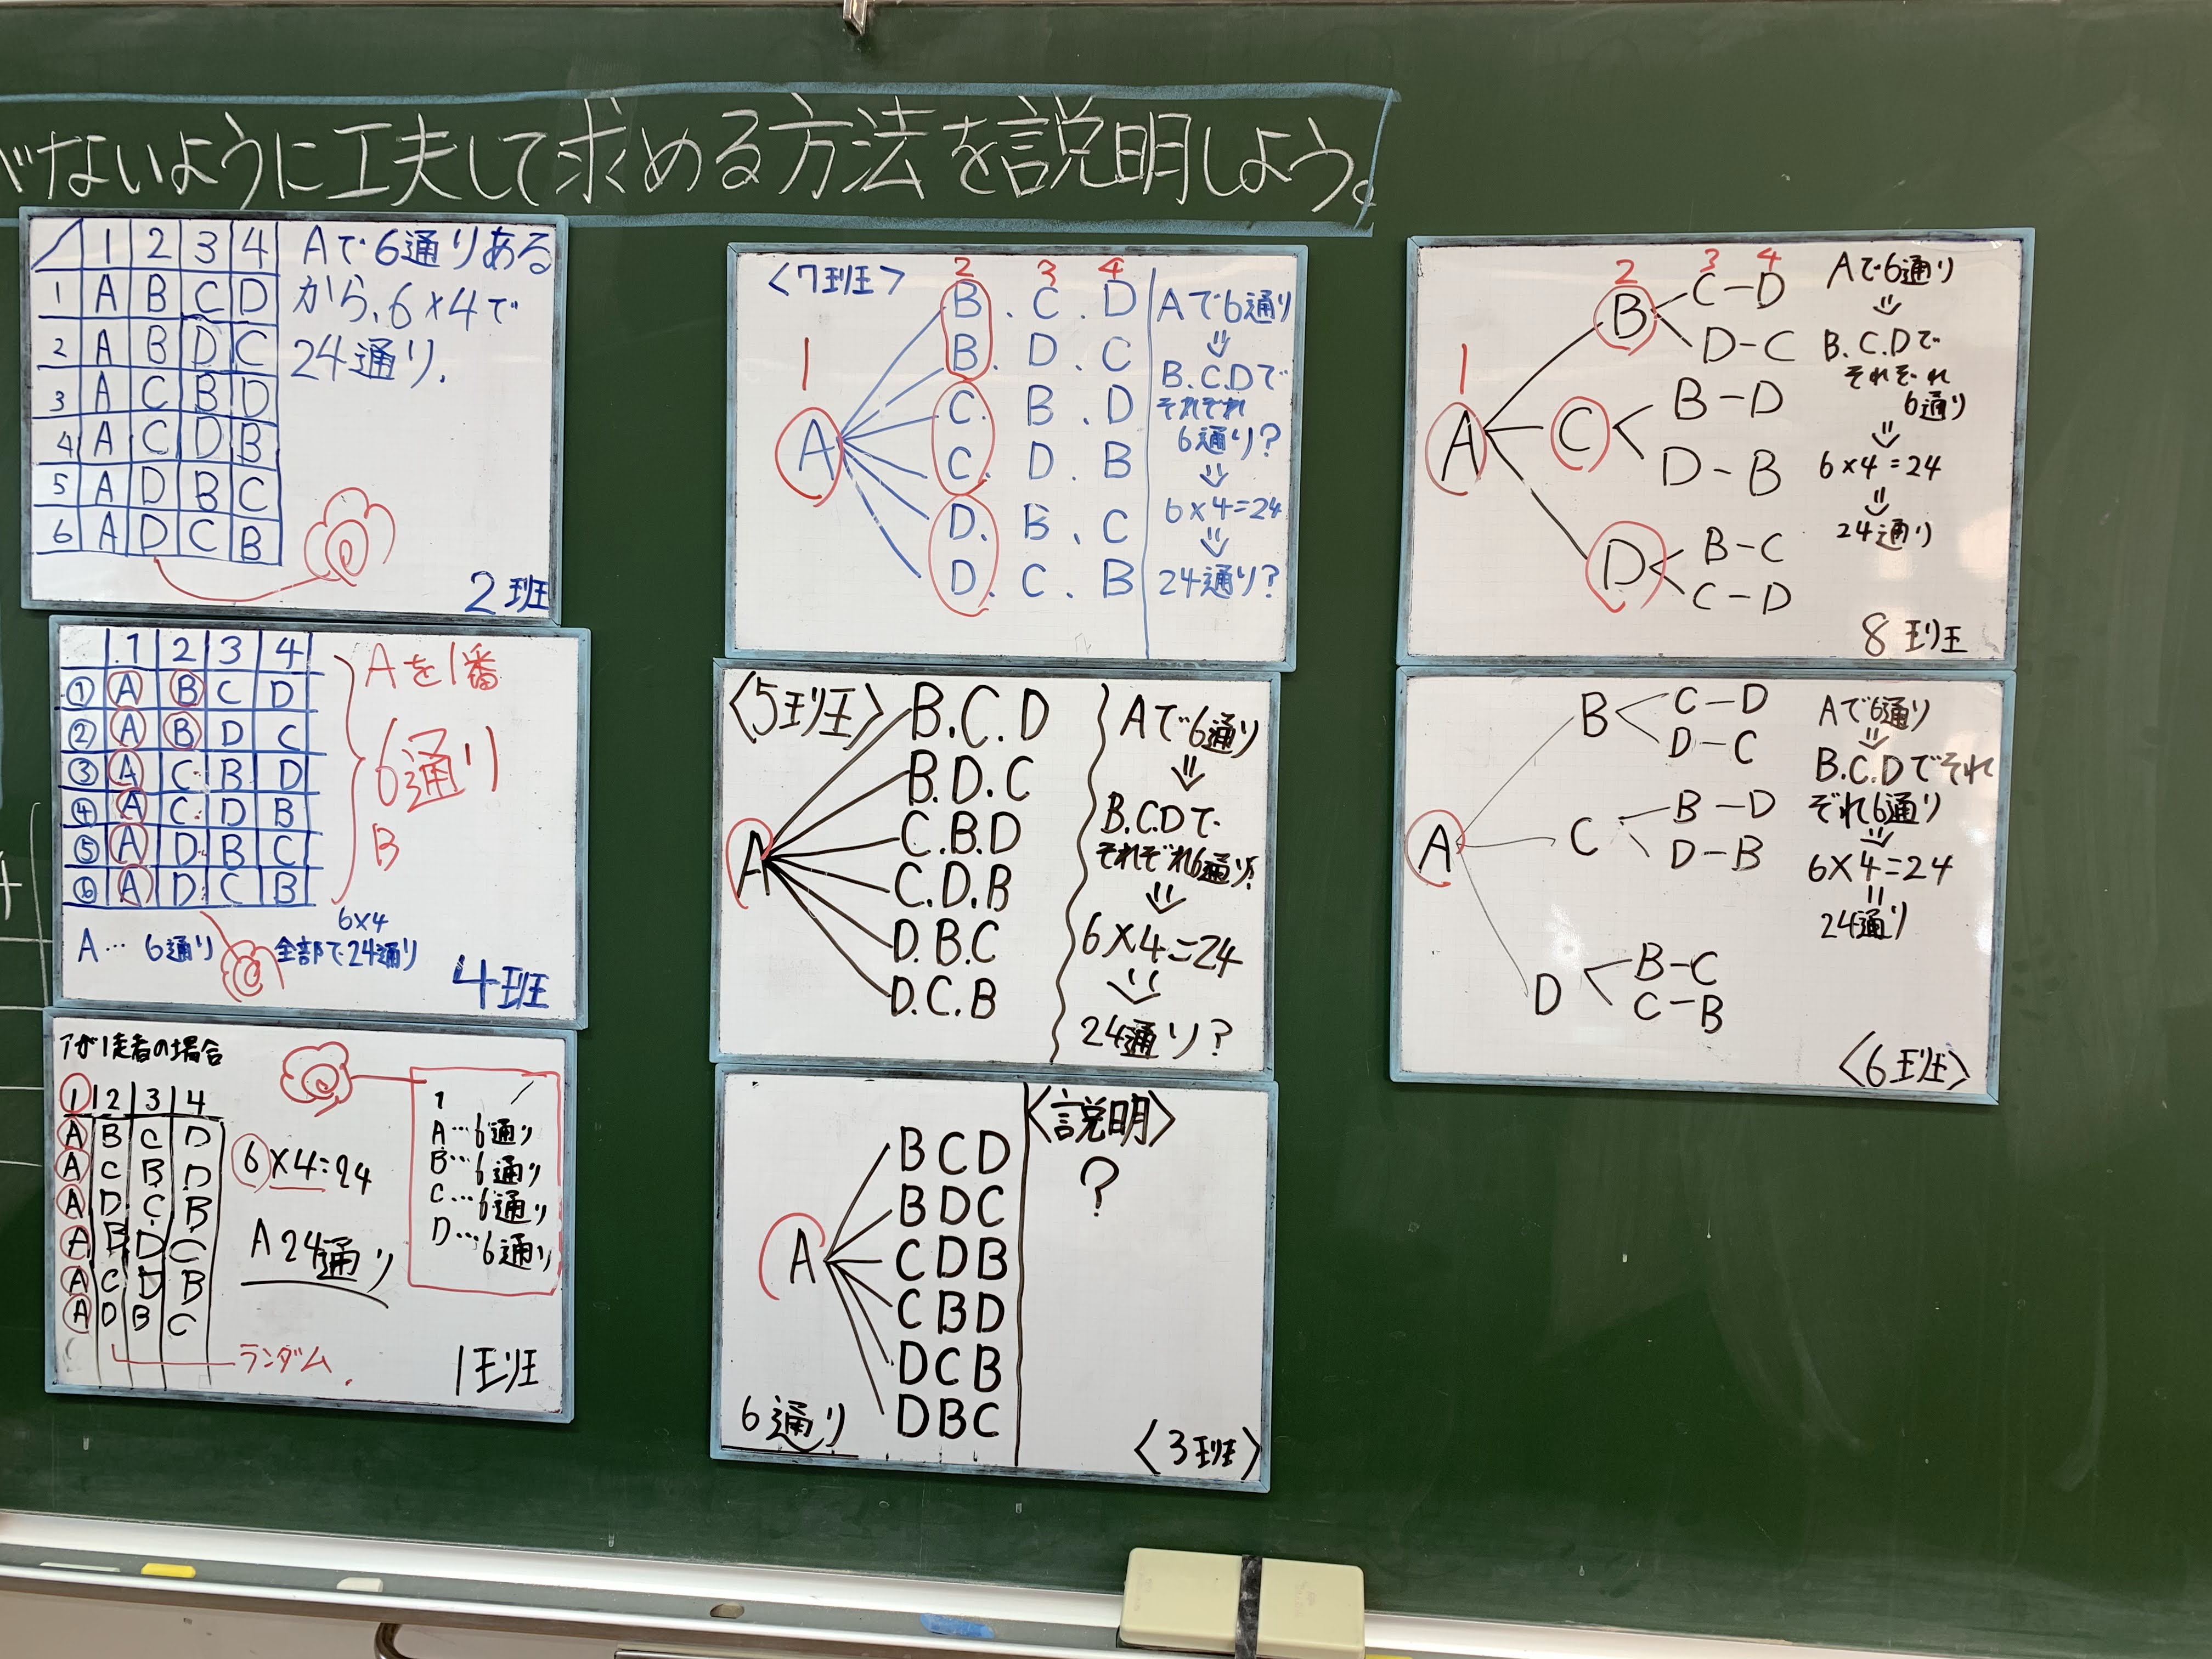 がないように工夫して求める方法を説明しよう。
1 2 3 4
1 A B C D
2 A B D C
3 A C B D
4 A C D B
5 A D B C
6 A D C B
Aで6通りある
から、6×4で
24通り.
2班
1 2 3 4
① A B C D
② A B D C
③ A C B D
④ A C D B
⑤ A D B C
⑥ A D C B
Aを1番
6通り
B
A… 6通り
6×4
全部で24通り
4班
アが1走者の場合
1 2 3 4
A B C D
A C B D
A D C B
A B D C
A C D B
A D B C
6×4=24
A 24通り
1
A…6通り
B…6通り
C…6通り
D…6通り
ランダム.
1班
<7班>
1 2 3 4
A
B . C . D
B. D . C
C. B . D
C. D . B
D. B . C
D. C . B
Aで6通り
⇓
B.C.Dで
それぞれ
6通り?
⇓
6×4=24
⇓
24通り?
<5班>
A
B.C.D
B.D.C
C.B.D
C.D.B
D.B.C
D.C.B
Aで6通り
⇓
B.C.Dで
それぞれ6通り?
⇓
6×4=24
⇓
24通り?
A
BCD
BDC
CDB
CBD
DCB
DBC
6通り
<説明>
?
<3班>
1 2 3 4
A
B C-D
D-C
C B-D
D-B
D B-C
C-D
Aで6通り
⇓
B.C.Dで
それぞれ
6通り
⇓
6×4=24
⇓
24通り
8班
A
B C-D
D-C
C B-D
D-B
D B-C
C-B
Aで6通り
⇓
B.C.Dでそれ
ぞれ6通り
⇓
6×4=24
=
24通り
<6班>